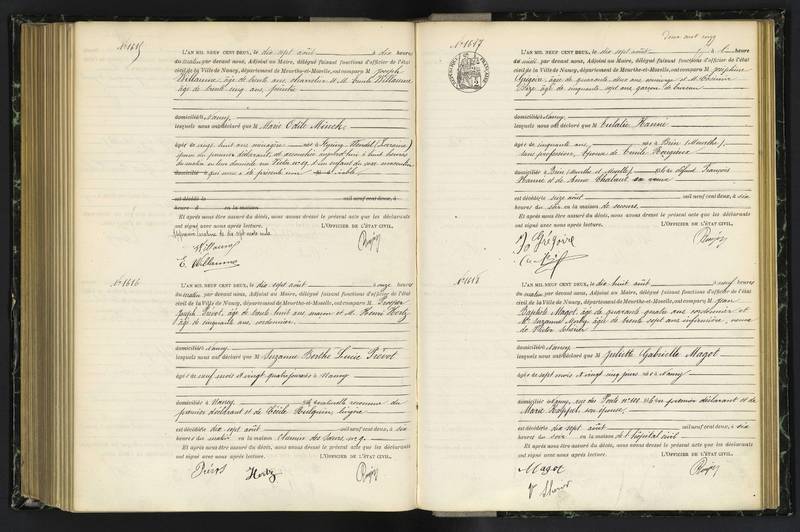 N° 1615
L'AN MIL NEUF CENT DEUX, le dix sept août à dix heures
du matin par devant nous, Adjoint au Maire, délégué faisant fonctions d'officier de l'état
civil de la Ville de Nancy, département de Meurthe-et-Moselle, ont comparu M Joseph
Willaume, âgé de trente ans, et M. Emile Willaume,
âgé de trente cinq ans, peintre
domiciliés à Nancy,
lesquels nous ont déclaré que M Marie Odile Minck,
âgée de vingt huit ans ménagère née à (Lorraine)
épouse du premier déclarant, est accouchée aujourd'hui à huit heures
du matin en leur domicile rue n° 19 d'un enfant du sexe masculin
domicilié à qui nous a été présenté sans vie.
est décédé le mil neuf cent deux, à
heure à en la maison
Et après nous être assuré du décès, nous avons dressé le présent acte que les déclarants
ont signé avec nous après lecture. L'OFFICIER DE L'ÉTAT CIVIL,
Willaume
E. Willaume
N° 1616
L'AN MIL NEUF CENT DEUX, le dix sept août à onze heures
du matin, par devant nous, Adjoint au Maire, délégué faisant fonctions d'officier de l'état
civil de la Ville de Nancy, département de Meurthe-et-Moselle, ont comparu M. Prosper
Joseph Prévot, âgé de trente huit ans maçon et M. Henri Hertz
âgé de cinquante ans, cordonnier,
domiciliés à Nancy
lesquels nous ont déclaré que M Suzanne Berthe Lucie Prévot
âgée de neuf mois et vingt quatre jours née à Nancy
domiciliée à Nancy, fille naturelle reconnue du
premier déclarant et de Cécile Hulquin, lingère
est décédée dix sept août mil neuf cent deux, à six
heures du matin en la maison chemin des n° 9.
Et après nous être assuré du décès, nous avons dressé le présent acte que les déclarants
ont signé avec nous après lecture. L'OFFICIER DE L'ÉTAT CIVIL,
Prévot Hertz
Deux cent cinq
N° 1617
L'AN MIL NEUF CENT DEUX, le dix sept août à une heure
du midi, par devant nous, Adjoint au Maire, délégué faisant fonctions d'officier de l'état
civil de la Ville de Nancy, département de Meurthe-et-Moselle, ont comparu M Joséphine
Grégoire âgée de quarante deux ans et M. Etienne
âgé de cinquante sept ans garçon de bureau
domiciliés à Nancy
lesquels nous ont déclaré que M Eulalie Hanne
âgée de cinquante ans, née à Brin (Meurthe),
sans profession, épouse de Emile
domiciliée à Brin (Meurthe et Moselle), fille de défunt François
Hanne et de Anne Chalant sa veuve
est décédée seize août mil neuf cent deux, à six
heures du soir en la maison de secours.
Et après nous être assuré du décès, nous avons dressé le présent acte que les déclarants
ont signé avec nous après lecture. L'OFFICIER DE L'ÉTAT CIVIL,
Jo Grégoire
N° 1618
L'AN MIL NEUF CENT DEUX, le dix huit août à neuf heures
du matin, par devant nous, Adjoint au Maire, délégué faisant fonctions d'officier de l'état
civil de la Ville de Nancy, département de Meurthe-et-Moselle, ont comparu M. Jean
Baptiste Magot, âgé de quarante quatre ans cordonnier et
Me Suzanne âgée de trente sept ans infirmière, veuve
de Victor
domiciliés à Nancy
lesquels nous ont déclaré que M Juliette Gabrielle Magot
âgée de sept mois et vingt cinq jours née à Nancy
domiciliée à Nancy, rue des Ponts n° fille du premier déclarant et de
Marie son épouse,
est décédée dix sept août mil neuf cent deux, à six
heures du soir en la maison de l'hôpital civil
Et après nous être assuré du décès, nous avons dressé le présent acte que les déclarants
ont signé avec nous après lecture. L'OFFICIER DE L'ÉTAT CIVIL,
Magot